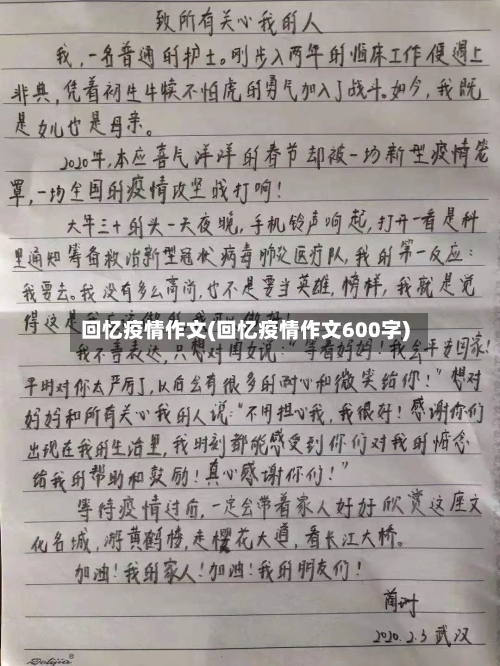 致所有关心我的人
我,一名普通的护士。刚步入两年的临床工作便遇上
非典,凭着初生牛犊不怕虎的勇气加入了战斗。如今,我既
是女儿也是母亲。
2020年,本应喜气洋洋的春节却被一场新型疫情笼
罩,一场全国的疫情攻坚战打响!
大年三十的头一天夜晚,手机铃声响起,打开一看是科
里通知筹备救治新型冠状病毒肺炎医疗队,我的第一反应:
我要去。我没有多么高尚,也不是要当英雄,榜样,我就是觉
得这是
回忆疫情作文(回忆疫情作文600字)
我不善表达,只想对闺女说:“等着妈妈!我会平安回家!
平时对你太严厉了,以后会有很多的耐心和微笑给你!”想对
妈妈和所有关心我的人说:“不用担心我,我很好!感谢你们
出现在我的生活里,我时刻都能感受到你们对我的惦念
给我的帮助和鼓励!真心感谢你们!”
等待疫情过后,一定会带着家人好好欣赏这座文
化名城,游黄鹤楼,走樱花大道,看长江大桥。
加油!我的家人!加油!我的朋友们!
2020.2.3 武汉